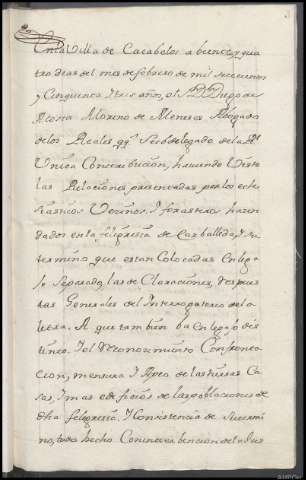 En la Villa de Cacabelos a beinte y qua
tro dias del mes de febrero de mil setecientos
y Cinquenta y tres años, el Dn Diego de
Acosta Moreno de Meneses Abogado
de los Reales Subdelegado de la Rl
Unica Contribucion, haviendo Visto
las Relaciones presentadas por los ecle
siasticos Vecinos, y forasteros hazen
dados en la feligresia de Carballeda, y su
termino, que estan Colocadas en lega
Separado, las de Claraciones, Respues
tas Generales del Interrogatorio de la
letra A. que tambien ba en legajo dis
tinto, y el Reconocimiento Confronta
cion, mensura, y Apeo de las tierras Ca
sas, y mas edificios de las poblaciones de
dha feligresia, y Consistencia de su termi
no, todo hecho Con intervencion de